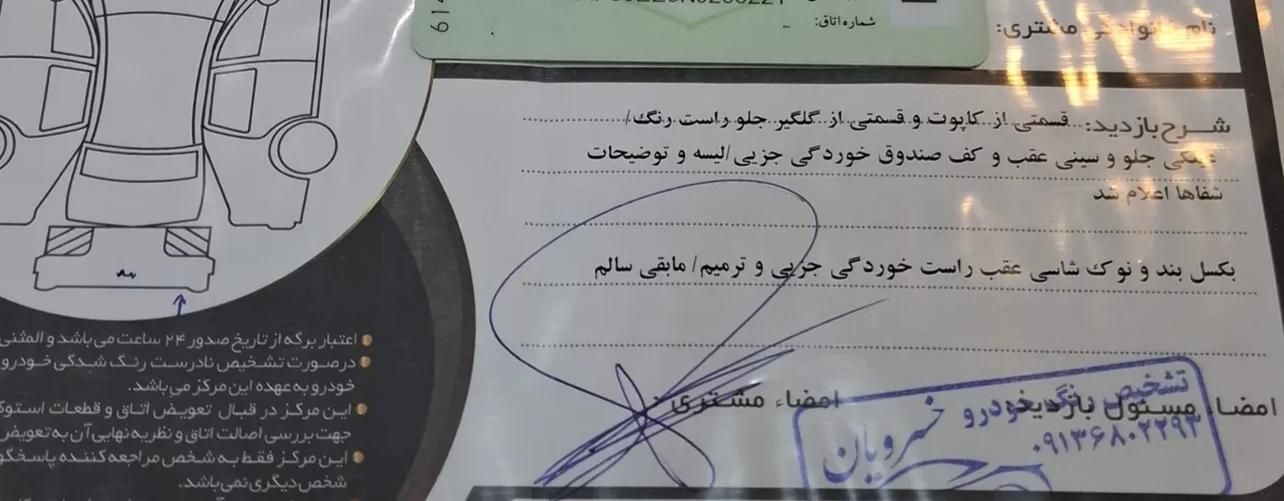 شماره اتاق:
نام خانوادگی مشتری:
شرح بازدید: قسمتی از کاپوت و قسمتی از گلگیر جلو راست رنگ/
سینی جلو و سینی عقب و کف صندوق خوردگی جزیی/لیسه و توضیحات
شفاها اعلام شد
بکسل بند و نوک شاسی عقب راست خوردگی جزیی و ترمیم/ مابقی سالم
امضاء مسئول بازدید:
امضاء مشتری:
تشخیص رنگ خودرو خسرویان
۰۹۱۳۶۸۰۲۲۹۳
اعتبار برگه از تاریخ صدور ۲۴ ساعت می باشد و المثنی
درصورت تشخیص نادرست رنگ شدگی خودرو
خودرو به عهده این مرکز می باشد.
این مرکز در قبال تعویض اتاق و قطعات استوک
جهت بررسی اصالت اتاق و نظریه نهایی آن به تعویض
این مرکز فقط به شخص مراجعه کننده پاسخگو
شخص دیگری نمی باشد.